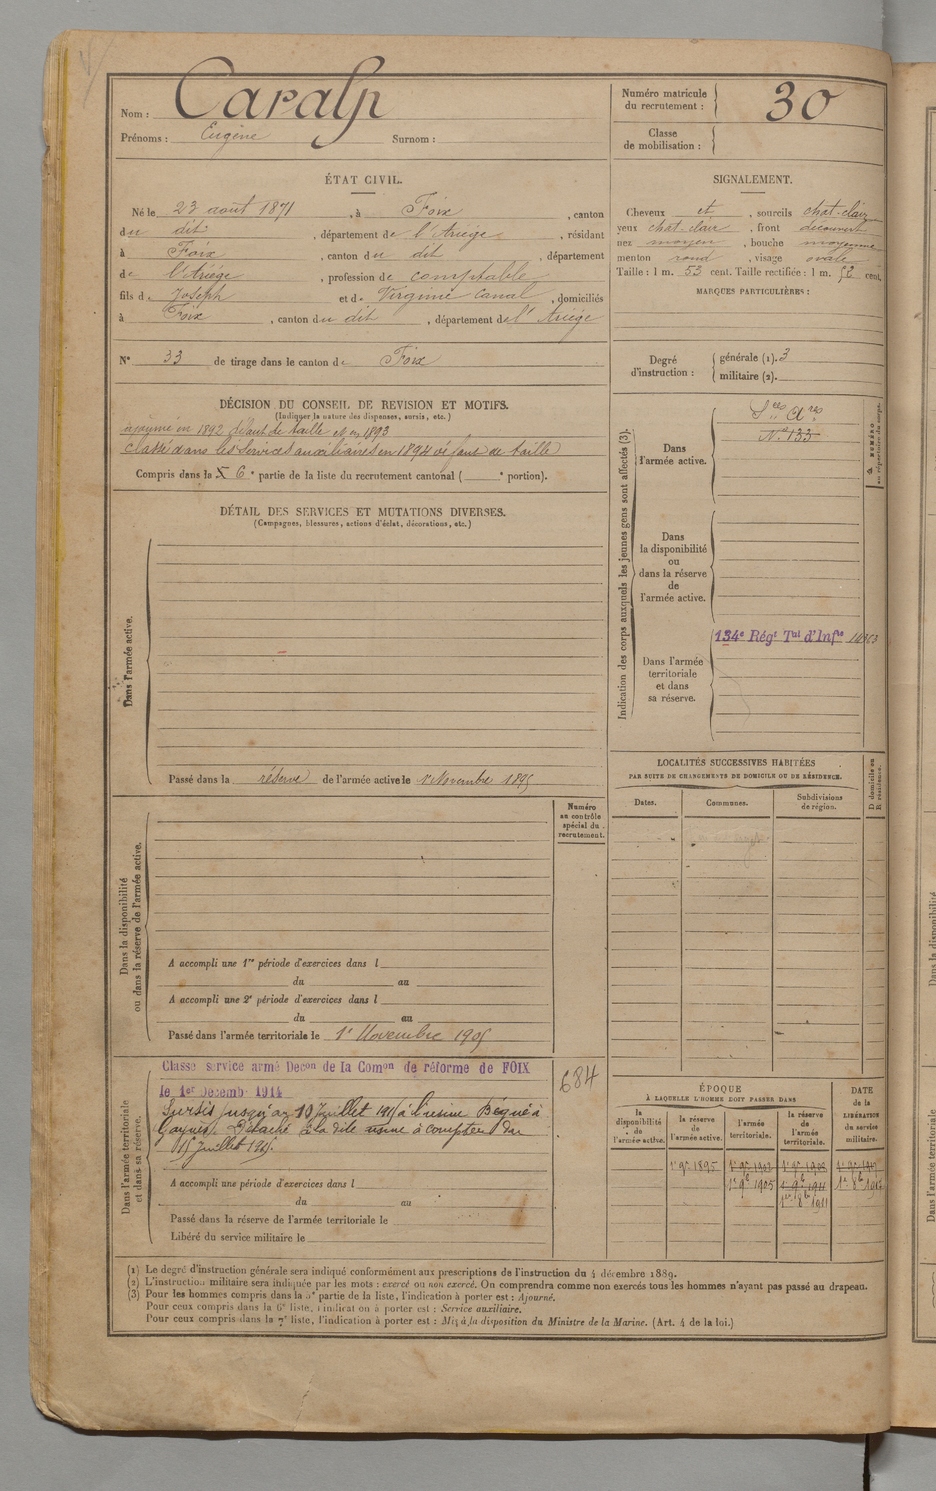 Nom : Caralp
Prénoms : Eugène Surnom :
Numéro matricule du recrutement : 30
Classe de mobilisation :
ÉTAT CIVIL.
Né le 23 août 1871, à Foix, canton
du dit, département de l'Ariège, résidant
à Foix, canton du dit, département
de l'Ariège, profession de comptable
fils de Joseph et de Virginie Canal, domiciliés
à Foix, canton du dit, département de l'Ariège
N° 33 de tirage dans le canton de Foix
SIGNALEMENT.
Cheveux et, sourcils chat-clair
yeux chat. clair, front découvert
nez moyen, bouche moyenne
menton rond, visage ovale
Taille : 1 m. 53 cent. Taille rectifiée : 1 m. cent.
MARQUES PARTICULIÈRES :
Degré d'instruction : générale (1). 3
militaire (2).
DÉCISION DU CONSEIL DE REVISION ET MOTIFS.
(Indiquer la nature des dispenses, sursis, etc.)
ajourné en 1892 défaut de taille et en 1893
Classé dans les services auxiliaires en 1894 défaut de taille
Compris dans la 6e partie de la liste du recrutement cantonal ( e portion).
DÉTAIL DES SERVICES ET MUTATIONS DIVERSES.
(Campagnes, blessures, actions d'éclat, décorations, etc.)
Dans l'armée active.
Passé dans la réserve de l'armée active le 1er Novembre 1895
Indication des corps auxquels les jeunes gens sont affectés (3).
Dans l'armée active.
Sces Ares
N° 133
NUMÉRO au répertoire du corps.
Dans la disponibilité ou dans la réserve de l'armée active.
Dans l'armée territoriale et dans sa réserve.
134e Régt Tal d'Infie
LOCALITÉS SUCCESSIVES HABITÉES
PAR SUITE DE CHANGEMENTS DE DOMICILE OU DE RÉSIDENCE.
Dates. Communes. Subdivisions de région.
D domicile ou R résidence.
Numéro au contrôle spécial du recrutement.
Dans la disponibilité ou dans la réserve de l'armée active.
A accompli une 1re période d'exercices dans l
du au
A accompli une 2e période d'exercices dans l
du au
Passé dans l'armée territoriale le 1er Novembre 1905
Dans l'armée territoriale et dans sa réserve.
Classé service armé Decon de la Comon de réforme de FOIX
le 1er Decemb 1914
684
Sursis jusqu'au 10 Juillet 1915 à l'usine
Détaché à la dite usine à compter du
15 Juillet 1915.
A accompli une période d'exercices dans l
du au
Passé dans la réserve de l'armée territoriale le
Libéré du service militaire le
ÉPOQUE
À LAQUELLE L'HOMME DOIT PASSER DANS
la disponibilité de l'armée active.
la réserve de l'armée active.
l'armée territoriale.
la réserve de l'armée territoriale.
DATE de la LIBÉRATION du service militaire.
1er 9e 1895
1er 9e 1905
(1) Le degré d'instruction générale sera indiqué conformément aux prescriptions de l'instruction du 4 décembre 1889.
(2) L'instruction militaire sera indiquée par les mots : exercé ou non exercé. On comprendra comme non exercés tous les hommes n'ayant pas passé au drapeau.
(3) Pour les hommes compris dans la 5e partie de la liste, l'indication à porter est : Ajourné.
Pour ceux compris dans la 6e liste, l'indication à porter est : Service auxiliaire.
Pour ceux compris dans la 7e liste, l'indication à porter est : Mis à la disposition du Ministre de la Marine. (Art. 4 de la loi.)